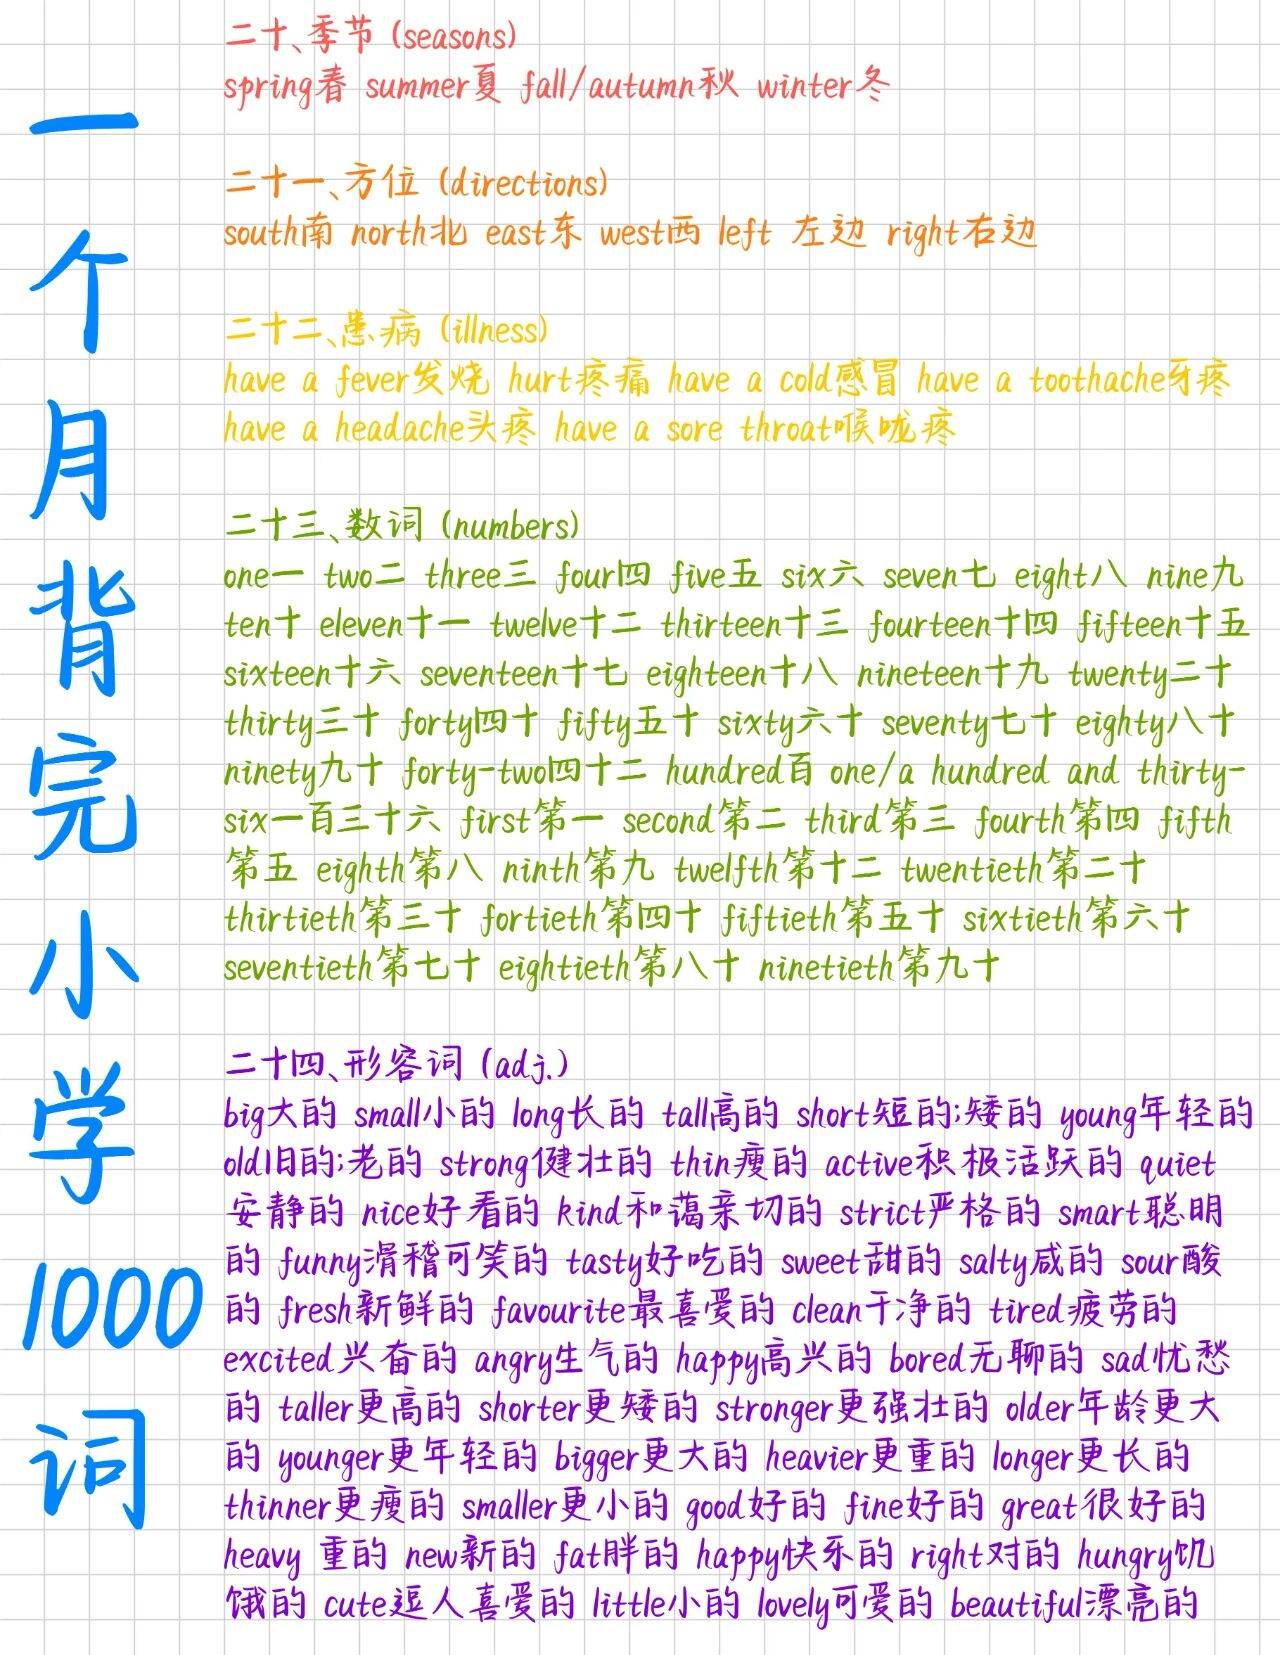 一个月背完小学1000词
二十、季节 (seasons)
spring春 summer夏 fall/autumn秋 winter冬
二十一、方位 (directions)
south南 north北 east东 west西 left 左边 right右边
二十二、患病 (illness)
have a fever发烧 hurt疼痛 have a cold感冒 have a toothache牙疼
have a headache头疼 have a sore throat喉咙疼
二十三、数词 (numbers)
one一 two二 three三 four四 five五 six六 seven七 eight八 nine九
ten十 eleven十一 twelve十二 thirteen十三 fourteen十四 fifteen十五
sixteen十六 seventeen十七 eighteen十八 nineteen十九 twenty二十
thirty三十 forty四十 fifty五十 sixty六十 seventy七十 eighty八十
ninety九十 forty-two四十二 hundred百 one/a hundred and thirty-
six一百三十六 first第一 second第二 third第三 fourth第四 fifth
第五 eighth第八 ninth第九 twelfth第十二 twentieth第二十
thirtieth第三十 fortieth第四十 fiftieth第五十 sixtieth第六十
seventieth第七十 eightieth第八十 ninetieth第九十
二十四、形容词 (adj.)
big大的 small小的 long长的 tall高的 short短的;矮的 young年轻的
old旧的;老的 strong健壮的 thin瘦的 active积极活跃的 quiet
安静的 nice好看的 kind和蔼亲切的 strict严格的 smart聪明
的 funny滑稽可笑的 tasty好吃的 sweet甜的 salty咸的 sour酸
的 fresh新鲜的 favourite最喜爱的 clean干净的 tired疲劳的
excited兴奋的 angry生气的 happy高兴的 bored无聊的 sad忧愁
的 taller更高的 shorter更矮的 stronger更强壮的 older年龄更大
的 younger更年轻的 bigger更大的 heavier更重的 longer更长的
thinner更瘦的 smaller更小的 good好的 fine好的 great很好的
heavy 重的 new新的 fat胖的 happy快乐的 right对的 hungry饥
饿的 cute逗人喜爱的 little小的 lovely可爱的 beautiful漂亮的